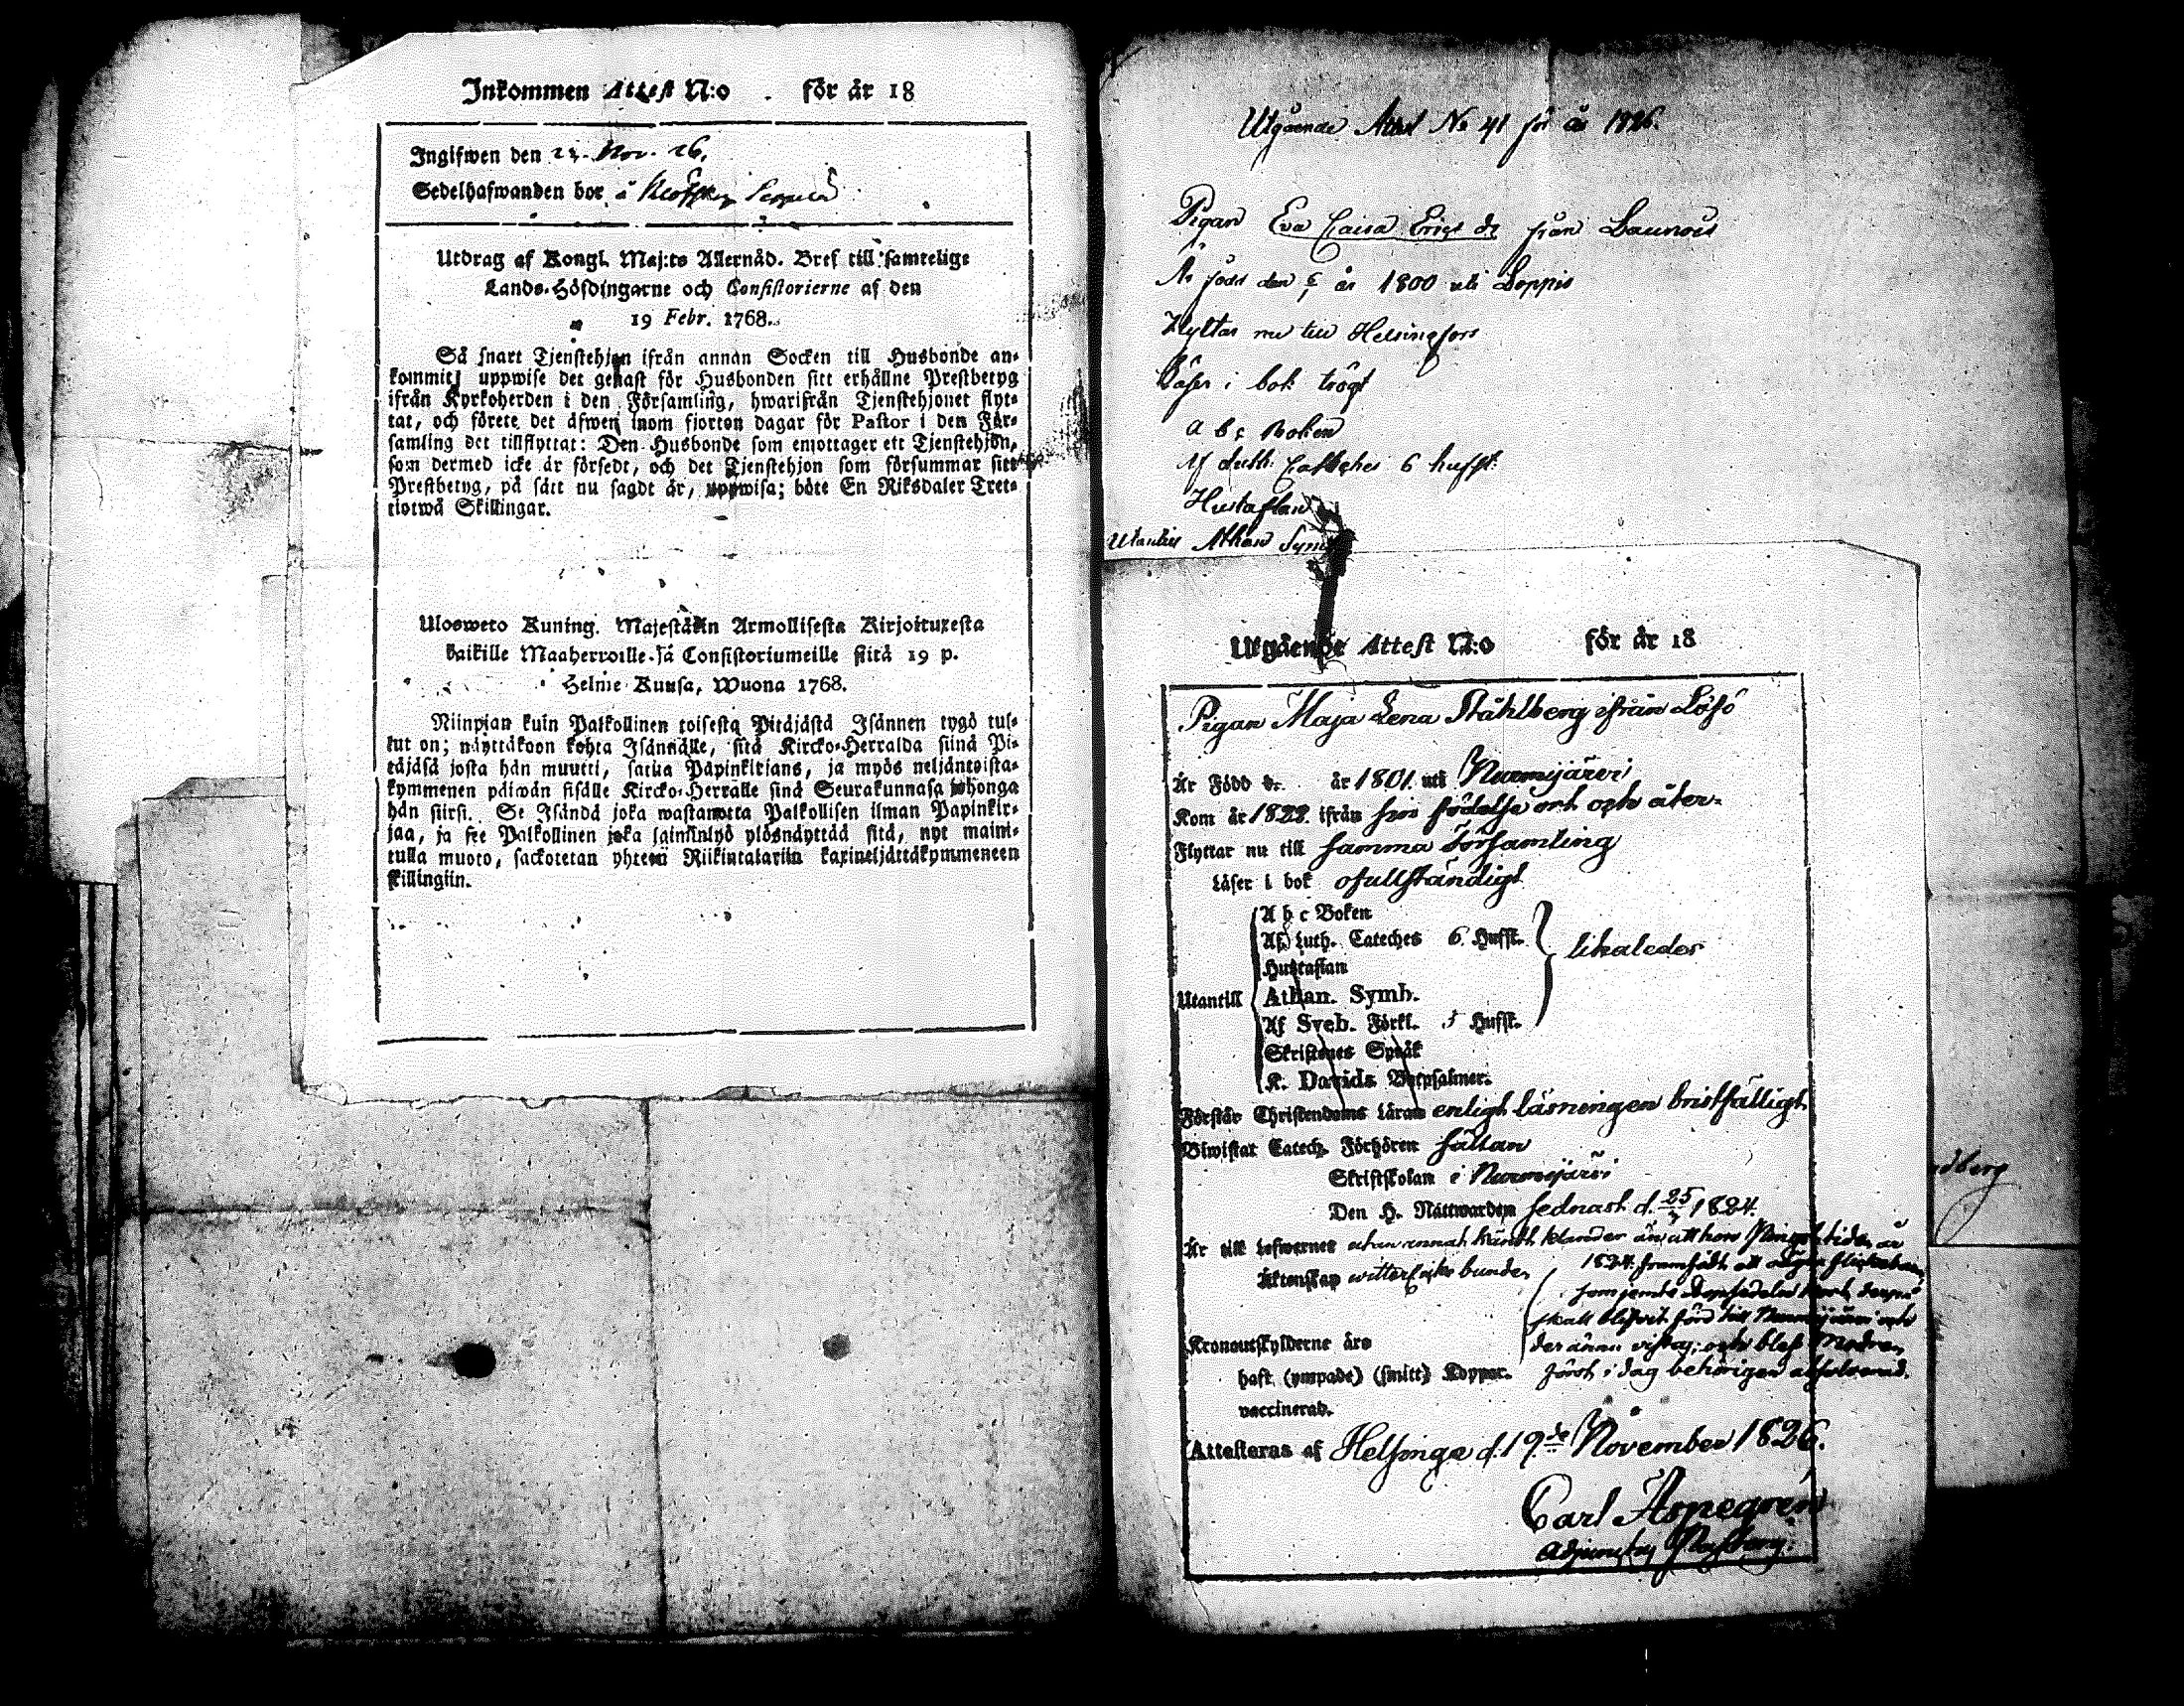 Inkommen Attest N:o för år 18
Ingifwen den Nov. 26.
Sedelhafwanden bor å
Utdrag af Kongl. Maj:ts Allernåd. Bref till samtelige
Lands-Höfdingarne och Consistorierne af den
19 Febr. 1768.
Så snart Tjenstehjon ifrån annan Socken till Husbonde an-
kommit, uppwise det genast för Husbonden sitt erhållne Prestbetyg
ifrån Kyrkoherden i den Församling, hwarifrån Tjenstehjonet flyt-
tat, och förete det äfwen inom fjorton dagar för Pastor i den För-
samling det tillflyttat: Den Husbonde som emottager ett Tjenstehjon,
som dermed icke är försedt, och det Tjenstehjon som försummar sitt
Prestbetyg, på sätt nu sagdt är, uppwisa; böte En Riksdaler Tret-
tiotwå Skillingar.
Ulosweto Kuning. Majestätin Armollisesta Kirjoituxesta
kaikille Maaherroille sä Consistoriumeille siitä 19 p.
Helme Kuusa, Wuona 1768.
Niinpian kuin Palkollinen toisesta Pitäjästä Isännen tygö tul-
lut on; näyttäköön kohta Isännälle, sitä Kircko-Herralda siinä Pi-
täjäsä josta hän muutti, saatua Papinkirjans, ja myös neljäntoista-
kymmenen päiwän sisälle Kircko-Herralle sinä Seurakunnasa johonga
hän siirsi. Se Isändä joka wastanotta Palkollisen ilman Papinkir-
jaa, ja see Palkollinen joka laiminlyö ylösnäyttää sitä, nyt maini-
tulla muoto, sackotetan yhteen Riikintalariin kaxineljättäkymmeneen
skillingiin.
Utgående Attest No 41 för år 1826.
Pigan Eva Caisa Erics dr från Launois
Är född den år 1800 uti Loppis
Flyttar nu till Helsingfors
Läser i bok trögt
a b c Boken
Af Luth. Cateches 6 hufst.
Hustaflan
Utantill Athan Symb
Utgående Attest N:o för år 18
Pigan Maja Lena Ståhlberg ifrån Löfö
Är Född d. år 1801. uti Nurmijärvi
Kom år 1822. ifrån sin födelse ort och åter-
Flyttar nu till samma Församling
Läser i bok ofullständigt
A b c Boken
Af Luth. Cateches 6 Hufst.
Hustaflan
likaledes
Utantill Athan. Symb.
Af Sveb. Förkl. 5 Hufst.
Skriftenes Språk
K. Davids Botpsalmer.
Förstår Christendoms Läran enligt läsningen bristfälligt
Biwistat Catech. Förhören sällan
Skriftskolan i Nurmijärvi
Den H. Nattwarden sednast d. 25 1824.
Är till Lefwernet utan annat kändt klander än att hon Pingsttiden år
1824. framfödt ett
Äktenskap witterl. icke bunden
som jemte
skall blifvit förd till Nurmijärvi och
Kronoutskylderne äro
der ännu vistas; och blef Modren
haft (ympade) (smitt) Koppor.
först i dag behörigen absolverad.
vaccinerad.
Attesteras af Helsinge d. 19de November 1826.
Carl Aspegren
Adjunctus
dberg